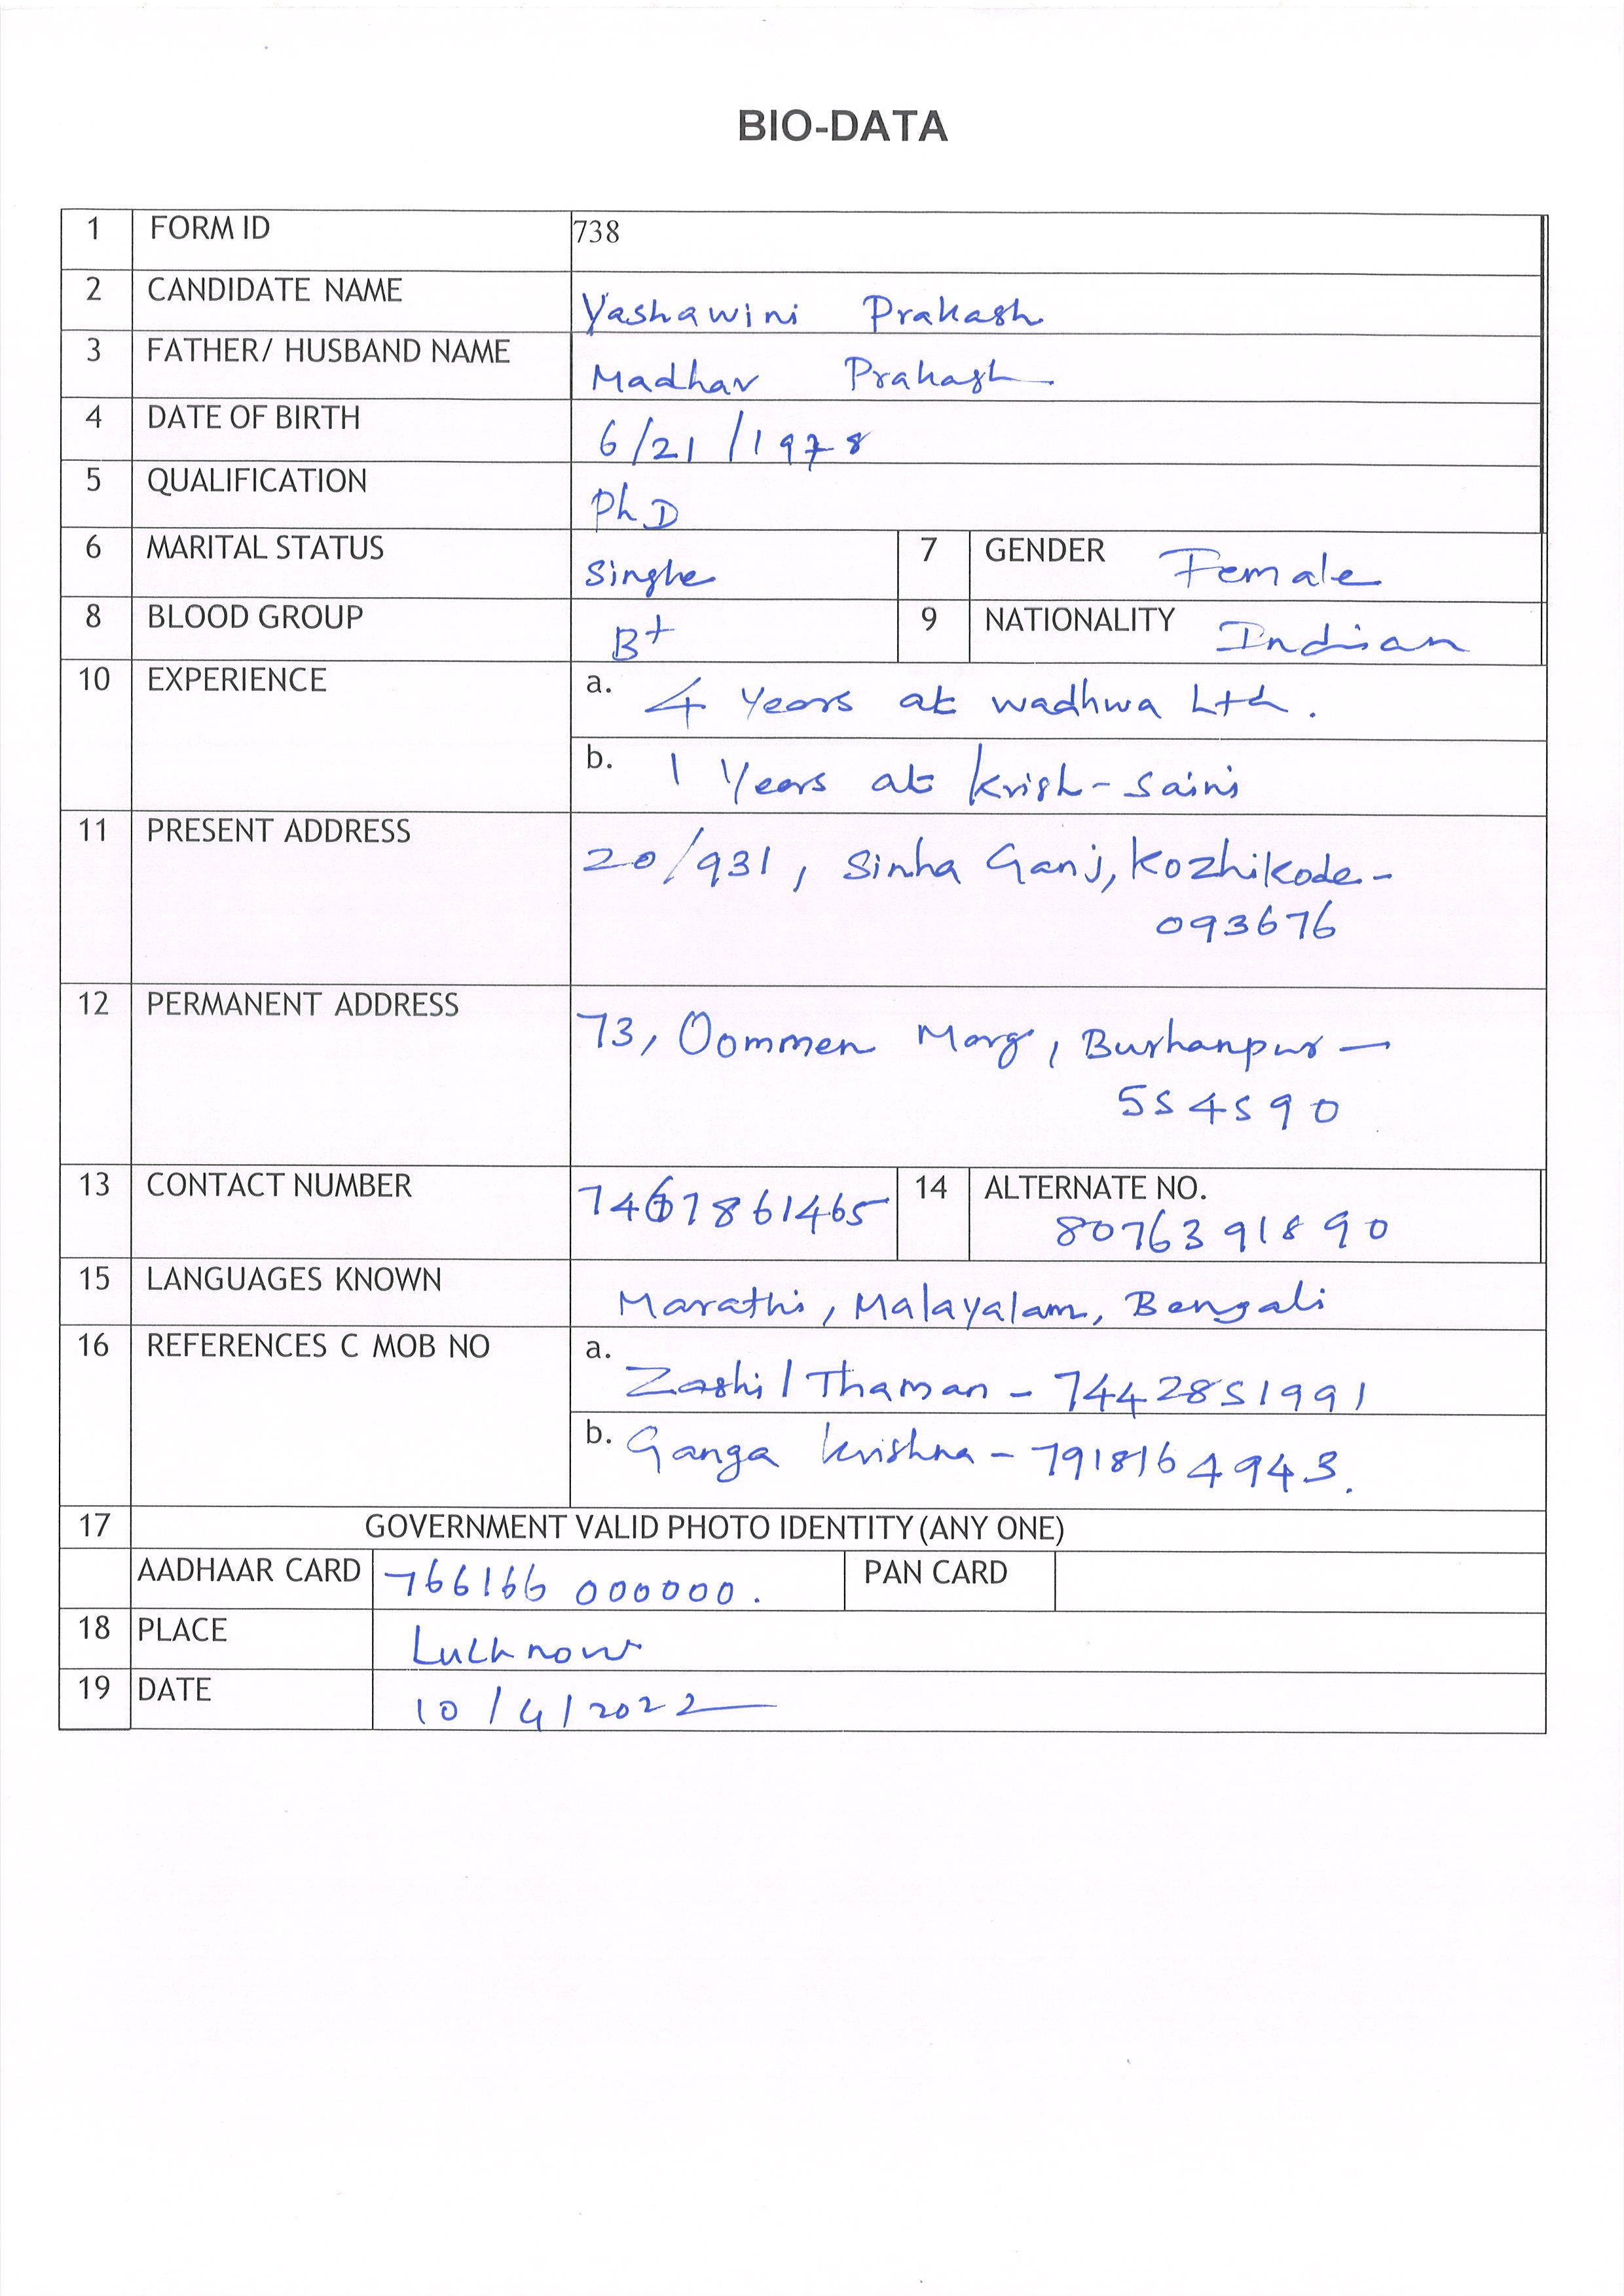 BIO-DATA
1 FORM ID 738
2 CANDIDATE NAME Yashawini Prakash
3 FATHER/ HUSBAND NAME Madhav Prakash
4 DATE OF BIRTH 6/21/1978
5 QUALIFICATION PhD
6 MARITAL STATUS Single 7 GENDER Female
8 BLOOD GROUP B+ 9 NATIONALITY Indian
10 EXPERIENCE a. 4 Years at wadhwa Ltd.
b. 1 Years at Krish-Saini
11 PRESENT ADDRESS 20/931, Sinha Ganj, Kozhikode-
093676
12 PERMANENT ADDRESS 73, Oommen Marg, Burhanpur-
554590
13 CONTACT NUMBER 7467861465 14 ALTERNATE NO.
8076391890
15 LANGUAGES KNOWN Marathi, Malayalam, Bengali
16 REFERENCES C MOB NO a. Zashil Thaman - 7442851991
b. Ganga Krishna - 7918164943.
17 GOVERNMENT VALID PHOTO IDENTITY (ANY ONE)
AADHAAR CARD 766166 000000. PAN CARD
18 PLACE Lucknow
19 DATE 10/4/2022